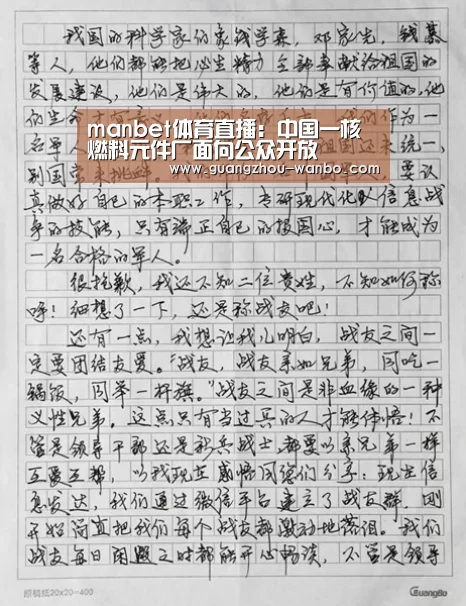 我国的科学家们象钱学森，邓家先，钱慕
等人，他们都能把必生精力全部奉献给祖国的
发展建设，他们是伟大的，他们是有价值的，他
们的生命才有意义
manbet体育直播：中国一核
燃料元件厂面向公众开放
www.guangzhou-wanbo.com
名军人
作为一
祖国还未统一，
别国常来挑衅。
要认
真做好自己的本职工作，专研现代化队信息战
争的技能，只有端正自己的报国心，才能成为
一名合格的军人。
很抱歉，我还不知二位贵姓，不知如何称
呼！细想了一下，还是称战友吧！
还有一点，我想让我儿明白，战友之间一
定要团结友爱。“战友，战友亲如兄弟，同吃一
锅饭，同举一杆旗。”战友之间是非血缘的一种
义性兄弟。这点只有当过兵的人才能体悟！不
管是领导干部还是新兵战士，都要以亲兄弟一样
互爱互帮，以我现在感悟同您们分享：现在信
息发达，我们通过微信平台建立了战友群，刚
开始简直把我们每个战友都激动地落泪。我们
战友每日闲暇之时都能开心畅谈，不管是领导
原稿纸20x20=400
GuangBo